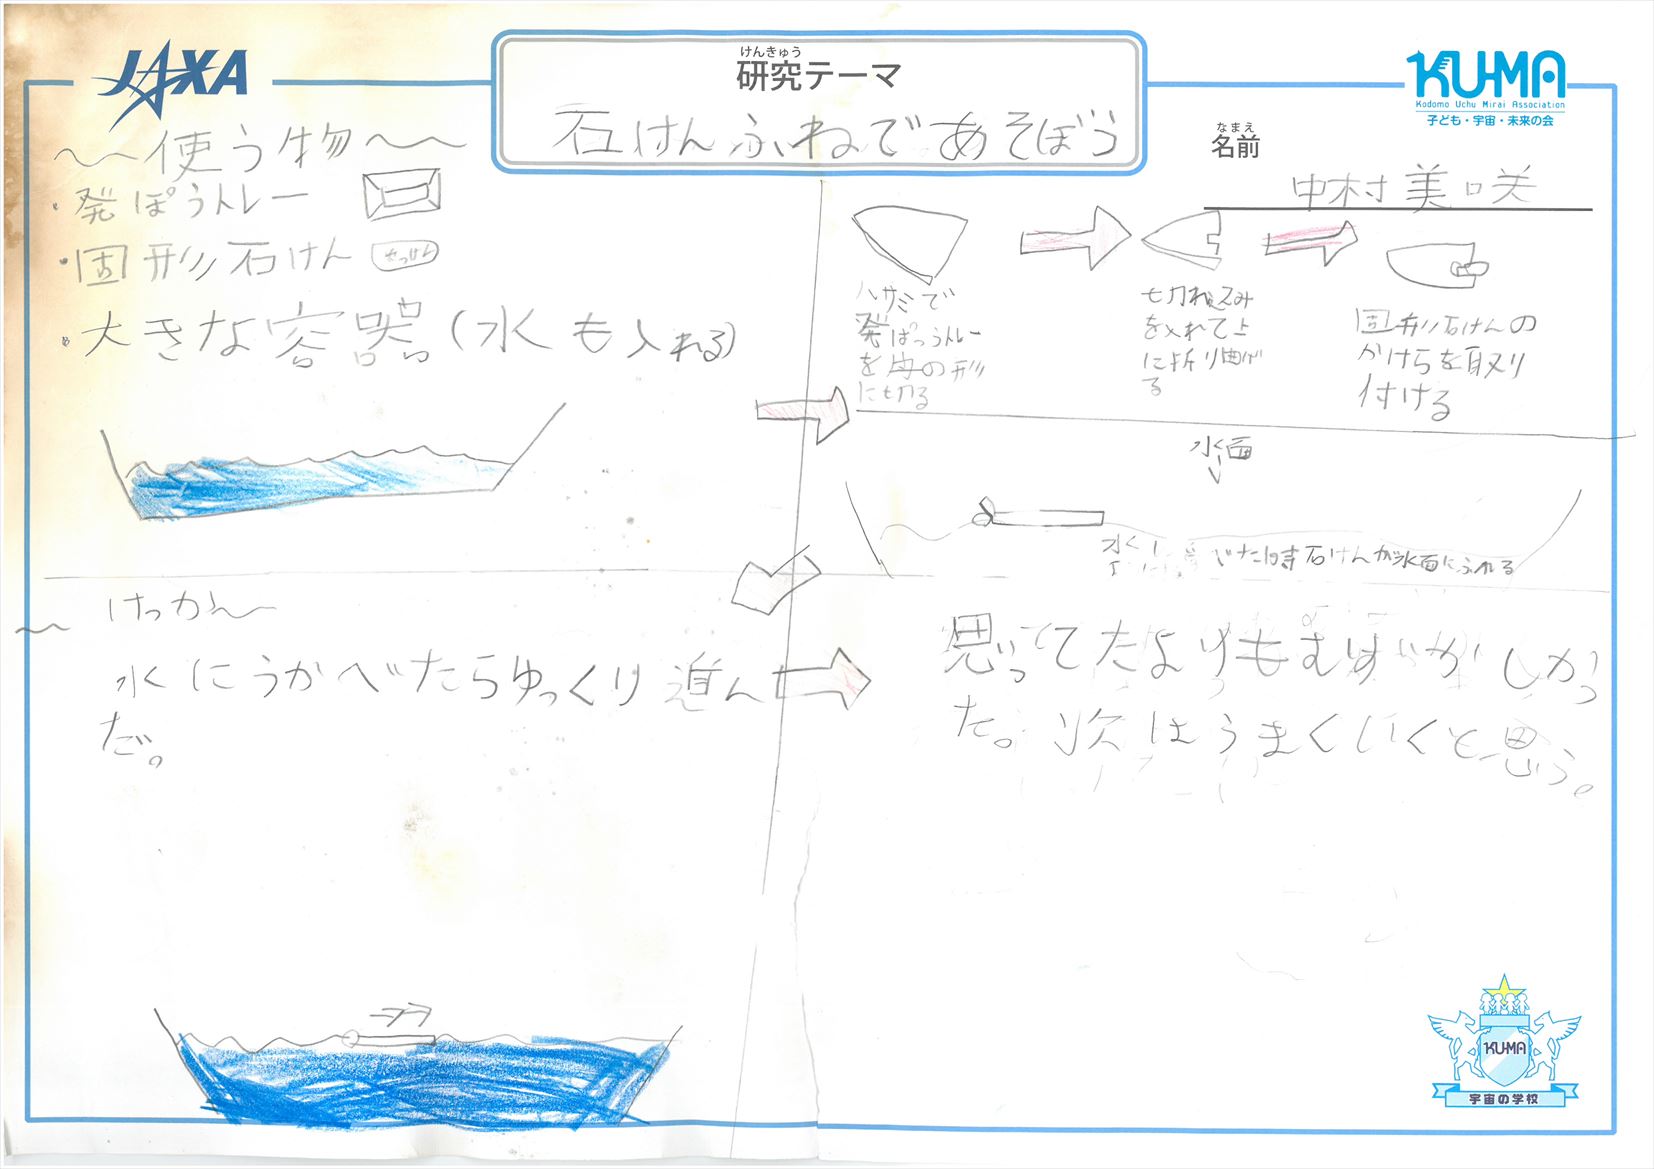 JAXA
けんきゅう
研究テーマ
石けんふねであそぼう
KU-MA
Kodomo Uchu Mirai Association
子ども・宇宙・未来の会
なまえ
名前
中村美咲
〜〜使う物〜〜
・発ぽうトレー
・固形石けん
せっけん
・大きな容器(水も入れる)
ハサミで
発ぽうトレー
を舟の形
に切る
切れ込み
を入れて上
に折り曲げ
る
固形石けんの
かけらを取り
付ける
水面
べた時石けんが水面にふれる
〜けっか〜
水にうかべたらゆっくり進ん
だ。
思ってたよりもむずかしかっ
た。次はうまくいくと思う。
KU-MA
宇宙の学校